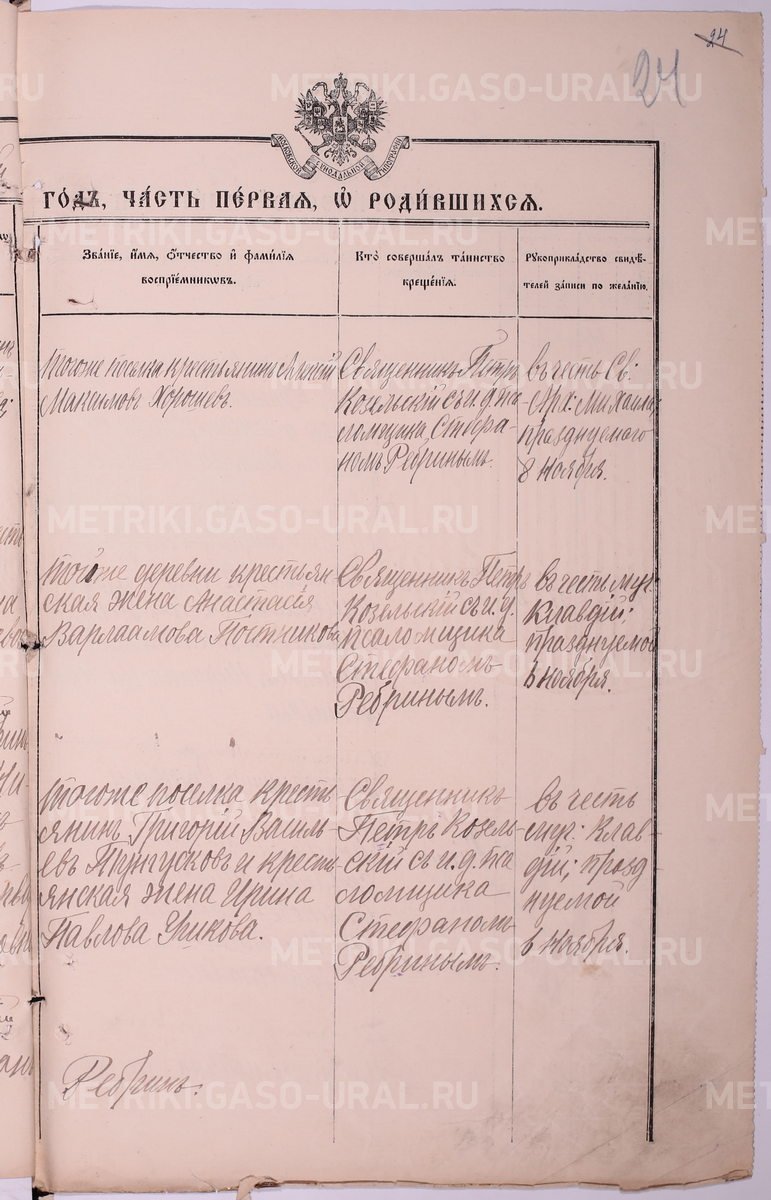 24
24
МОСКОВСКОЙ СѴНОДАЛЬНОЙ ТИПОГРАФІИ
ГОДЪ, ЧАСТЬ ПЕРВАЯ, Ѡ РОДИВШИХСЯ.
Званіе, имя, отчество и фамилія
воспріемниковъ.
Кто совершалъ таинство
крещенія.
Рукоприкладство свидѣ-
телей записи по желанію.
Тогоже поселка крестьянинъ
Максимовъ Хорошевъ.
Священникъ Петръ
Козельскій съ и. д. пса
ломщика Стефа-
номъ Ребринымъ.
Въ честь Св:
Арх: Михаила
празднуемаго
8 Ноября.
Тогоже деревни крестьян
ская жена Анастасія
Варлаамова Постникова
Священникъ Петръ
Козельскій съ и. д.
псаломщика
Стефаномъ
Ребринымъ.
Въ честь муч.
Клавдіи;
празднуемой
6 Ноября.
Тогоже поселка кресть
янинъ Григорій Василь-
евъ и кресть
янская жена Ирина
Павлова
Священникъ
Петръ Козель-
скій съ и. д. пса
ломщика
Стефаномъ
Ребринымъ.
Въ честь
муч: Клав-
діи; празд
нуемой
6 Ноября.
Ребринъ.
METRIKI.GASO-URAL.RU